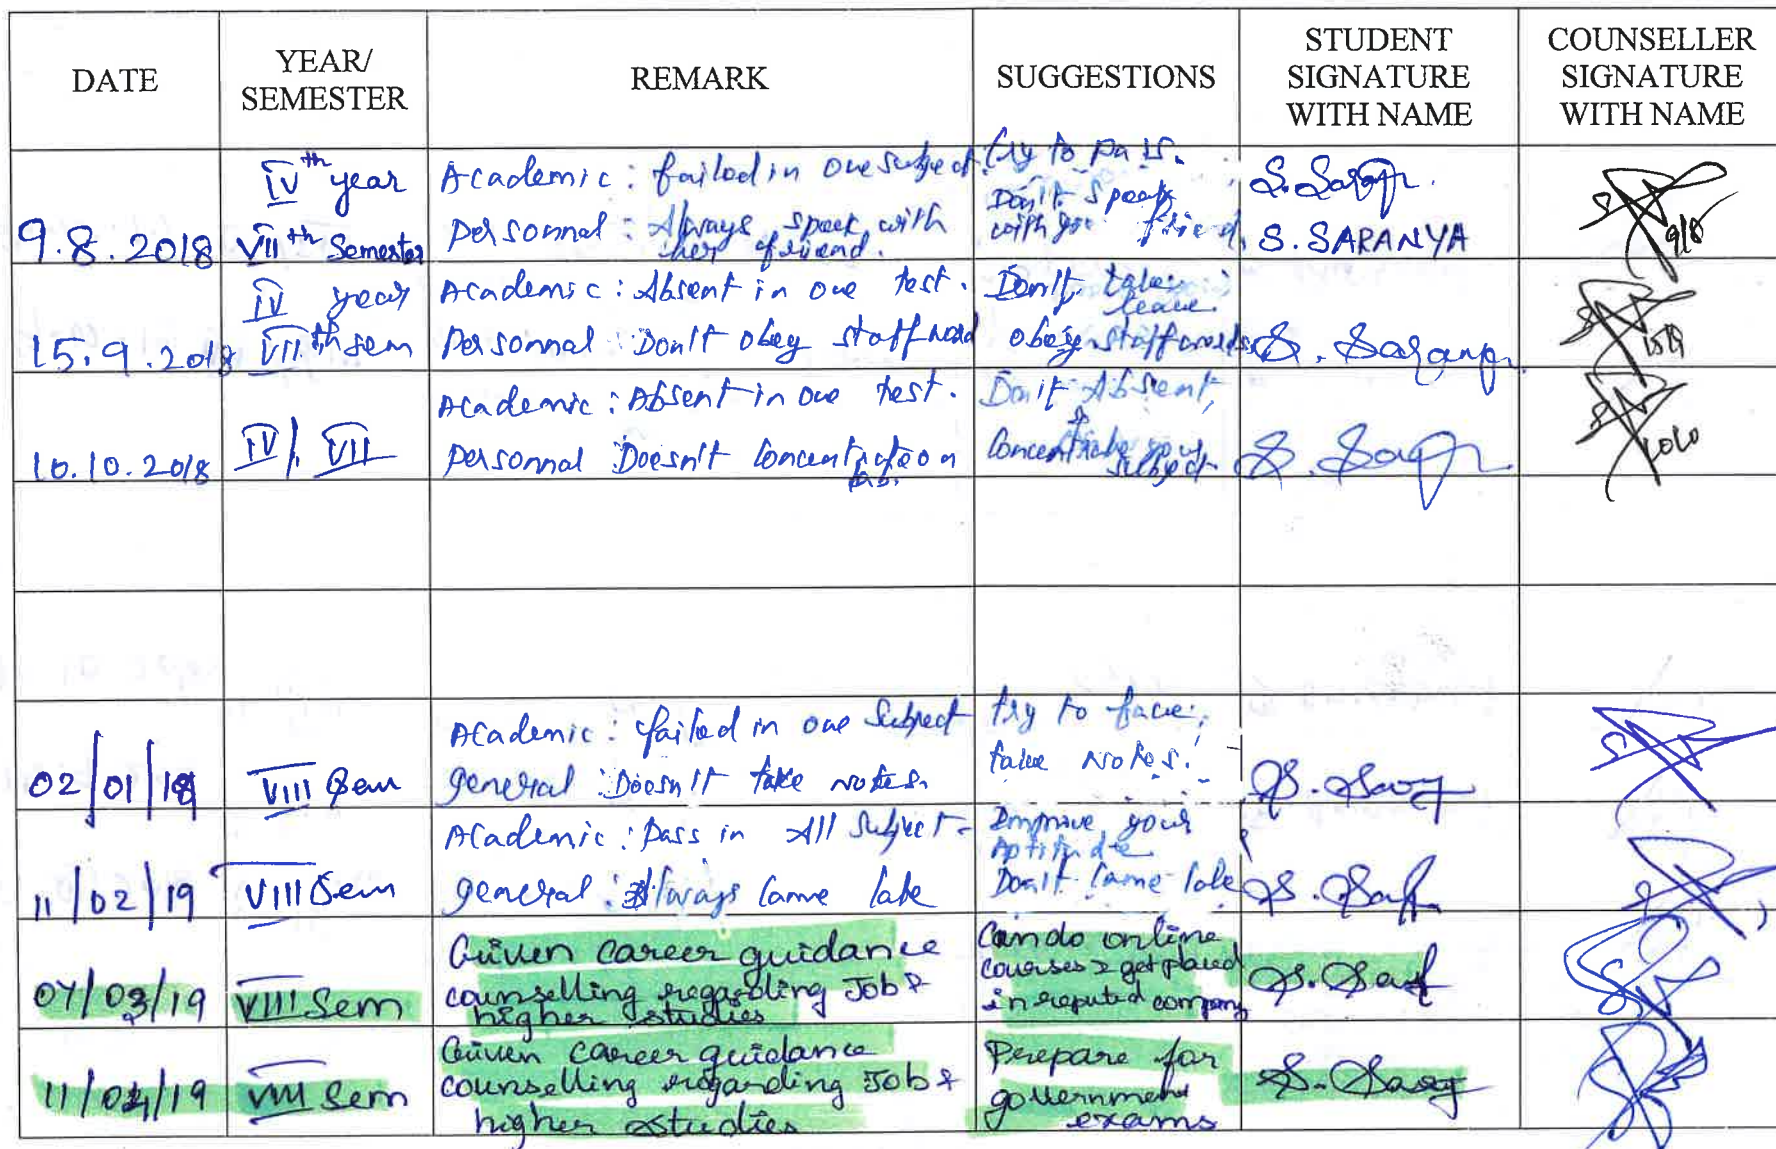 DATE
YEAR/
SEMESTER
REMARK
SUGGESTIONS
STUDENT
SIGNATURE
WITH NAME
COUNSELLER
SIGNATURE
WITH NAME
9.8.2018
IVth year
VIIth Semester
Academic : failed in one subject
Personnal : Always speek with
her friend.
try to pass.
Don't speek
with your friend.
S. SARANYA
9/8
15.9.2018
IV year
VIIth sem
Academic : Absent in one test.
Personnal Don't obey staff word
Don't take
leave.
obey staff words.
S. Saranya
15/9
10.10.2018
IV / VII
Academic : Absent in one test.
Personnal Doesn't Concentration
Don't Absent,
Concentrate your
subject
10/10
02/01/18
VIII Sem
Academic : failed in one Subject
General : Doesn't take notes.
try to face,
take Notes.
11/02/19
VIII Sem
Academic : Pass in All Subject.
General : Always Came late
Improve your
Aptitude
Don't Came late
07/03/19
VIII Sem
Given career guidance
counselling regarding Job &
higher studies
Can do online
courses & get placed
in reputed company
11/04/19
VIII Sem
Given career guidance
counselling regarding Job &
higher studies
Prepare for
government
exams